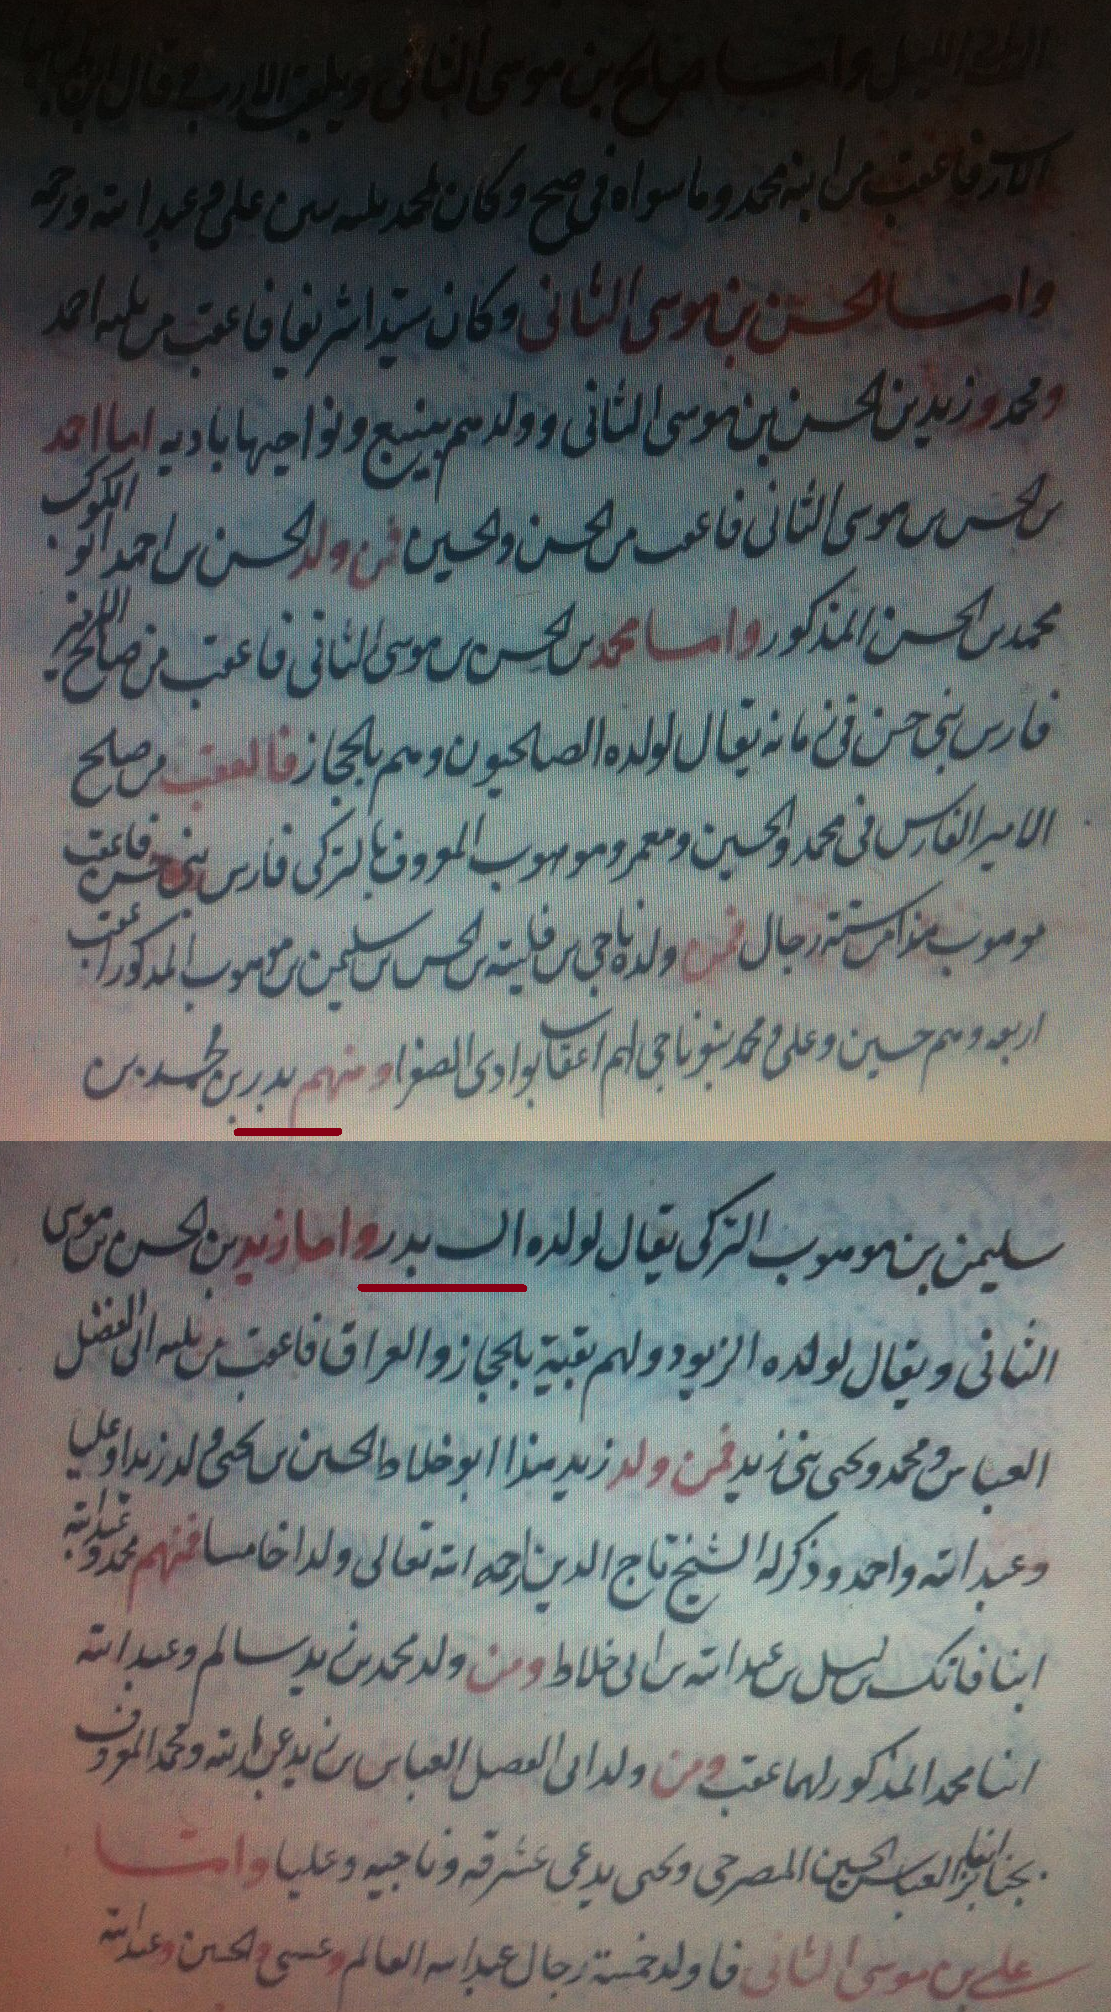 واما صالح بن موسى الثاني ويلقب الارت قال ابن
فاعقب من ابنه محمد وما سواه في صح وكان لمحمد ثلثه بنين علي وعبد الله ورحمه
واما الحسن بن موسى الثاني وكان سيدا شريفا فاعقب من ثلثه احمد
ومحمد وزيد بن الحسن بن موسى الثاني وولدهم بينبع ونواحيها باديه اما احمد
بن الحسن بن موسى الثاني فاعقب من الحسن والحسين فمن ولد الحسن بن احمد ابو الكوك
محمد بن الحسن المذكور واما محمد بن الحسن بن موسى الثاني فاعقب من صالح الامير
فارس بني حسن في زمانه يقال لولده الصالحيون وهم بالحجاز فالعقب من صالح
الامير الفارس في محمد والحسين ومعمر وموهوب المعروف بالتركي فارس بني حسن فاعقب
موهوب هذا من ستة رجال فمن ولده ناجي بن فليته بن الحسن بن سليمن بن موهوب المذكور اعقب
اربعه وهم حسين وعلي ومحمد بنو ناجي لهم اعقاب بوادي الصفرا ومنهم بدر بن محمد بن
سليمن بن موهوب التركي يقال لولده ال بدر واما زيد بن الحسن بن موسى
الثاني ويقال لولده الزيود ولهم بقية بالحجاز والعراق فاعقب من ثلثه ابي الفضل
العباس ومحمد ويحيى بني زيد فمن ولد زيد هذا ابو خلاط الحسين بن يحيى ولد زيدا وعليا
وعبد الله واحمد وذكر له الشيخ تاج الدين رحمه الله تعالى ولدا خامسا فمنهم محمد وعبد الله
ابنا فاتك بن ليل بن عبد الله بن ابي خلاط ومن ولد محمد بن زيد سالم وعبد الله
ابنا محمد المذكور لهما عقب ومن ولد ابي الفضل العباس بن زيد عن هبة الله ومحمد المعروف
العباس الحسين المصرحي ويحيى يدعى عشرقه وناجيه وعليا واما
علي بن موسى الثاني فاولد خمسة رجال عبد الله العالم وعيسى والحسين وعبد الله